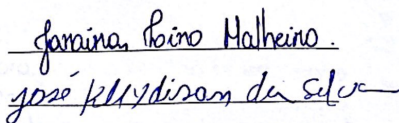 Janaina Lino Malheiro.
José Kllydison da Silva